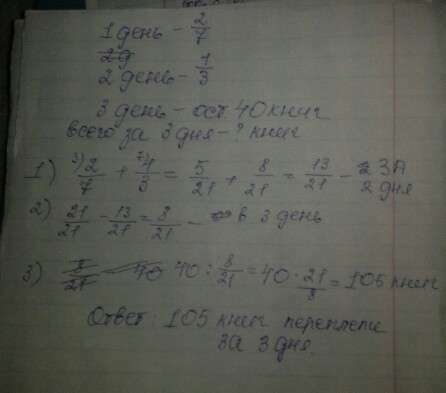 1 день - 2/7
2 день - 1/3
3 день - ост. 40 книг
всего за 3 дня - ? книг
1) 3) 2/7 + 7) 1/3 = 5/21 + 8/21 = 13/21 - за 2 дня
2) 21/21 - 13/21 = 8/21 - в 3 день
3) 40 : 8/21 = 40 · 21/8 = 105 книг
Ответ: 105 книг переплели
за 3 дня.